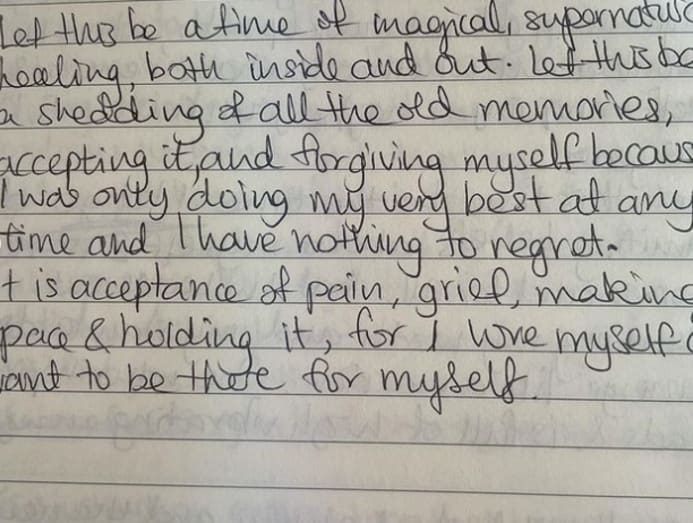 Let this be a time of magical, supernatura
healing, both inside and out. Let this be
a shedding of all the old memories,
accepting it, and forgiving myself becaus
I was only doing my very best at any
time and I have nothing to regret.
t is acceptance of pain, grief, making
pace & holding it, for I love myself
ant to be there for myself.